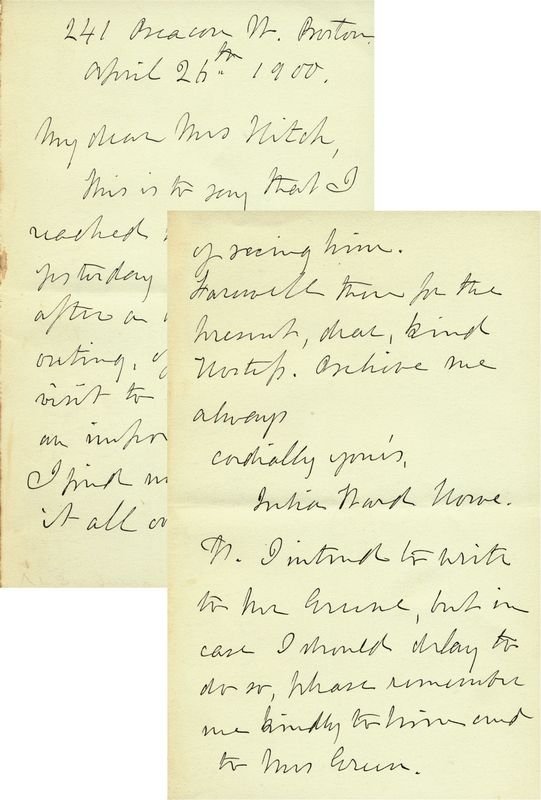 241 Beacon St. Boston.
April 26th 1900.
My dear Mrs Hitch,
This is to say that I
reached
yesterday
after a
outing, of
visit to
an impor
I find m
it all ov
of seeing him.
Farewell then for the
present, dear, kind
Hostess. Believe me
always
cordially yours,
Julia Ward Howe.
I intend to write
to Mr Greene, but in
case I should delay to
do so, please remember
me kindly to him and
to Mrs Green.